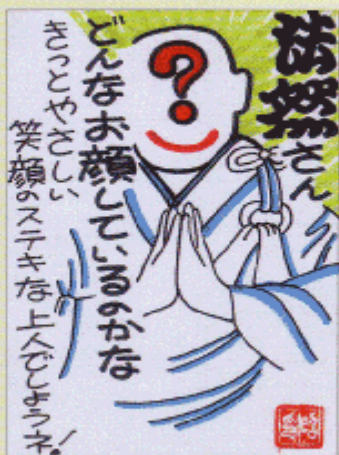 法然さん
どんなお顔しているのかな
きっとやさしい
笑顔のステキな上人でしょうネ!